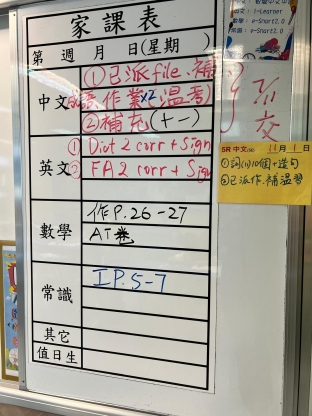 家課表
第 週 月 日(星期 )
中文
①已派file.補
作業x2 溫習
②補充(十一)
英文
① Dict 2 corr + Sign
② FA 2 corr + Sign
數學
作P.26-27
AT卷
常識
IP.5-7
其它
值日生
i-Learner
e-Smart2.0
e-Smart2.0
交
5R 中文 11月1日
①詞(11)10個+造句
②已派作.補溫習